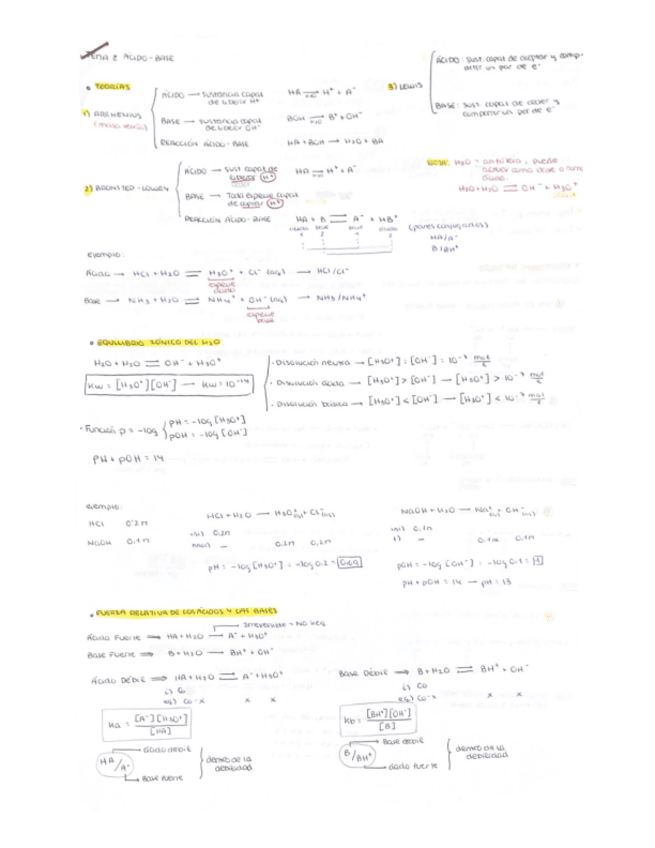 TEMA 8 ÁCIDO-BASE
• TEORÍAS
1) ARRHENIUS
ÁCIDO → sustancia capaz de liberar H⁺ HA →(H₂O) H⁺ + A⁻
BASE → sustancia capaz de liberar OH⁻ BOH →(H₂O) B⁺ + OH⁻
REACCIÓN ÁCIDO-BASE HA + BOH → H₂O + BA
3) LEWIS
ÁCIDO: sust. capaz de aceptar y compartir un par de e⁻
BASE: sust. capaz de ceder y compartir un par de e⁻
2) BRÖNSTED-LOWRY
ÁCIDO → sust. capaz de liberar H⁺ HA →(H₂O) H⁺ + A⁻
BASE → Toda especie capaz de captar H⁺
REACCIÓN ÁCIDO-BASE HA + B ⇌ A⁻ + HB⁺ (pares conjugados)
ácido 1 base 2 base 1 ácido 2
HA/A⁻
B/BH⁺
NOTA: H₂O = anfótera, puede actuar como base o como ácido
H₂O + H₂O ⇌ OH⁻ + H₃O⁺
ejemplo:
Ácido → HCl + H₂O ⇌ H₃O⁺ + Cl⁻ (aq) → HCl/Cl⁻
especie ácida
Base → NH₃ + H₂O ⇌ NH₄⁺ + OH⁻ (aq) → NH₃/NH₄⁺
especie base
• EQUILIBRIO IÓNICO DEL H₂O
H₂O + H₂O ⇌ OH⁻ + H₃O⁺
Kw = [H₃O⁺][OH⁻] — Kw = 10⁻¹⁴
· Disolución neutra → [H₃O⁺] = [OH⁻] = 10⁻⁷ mol/L
· Disolución ácida → [H₃O⁺] > [OH⁻] → [H₃O⁺] > 10⁻⁷ mol/L
· Disolución básica → [H₃O⁺] < [OH⁻] → [H₃O⁺] < 10⁻⁷ mol/L
· Función p = -log
pH = -log [H₃O⁺]
pOH = -log [OH⁻]
pH + pOH = 14
ejemplo:
HCl 0'2M
NaOH 0,1M
HCl + H₂O → H₃O⁺(aq) + Cl⁻(aq)
ini) 0,2M
final) — 0,2M 0,2M
pH = -log [H₃O⁺] = -log 0.2 = 0,69
NaOH + H₂O → Na⁺(aq) + OH⁻(aq)
ini) 0,1M
f) — 0,1M 0,1M
pOH = -log [OH⁻] = -log 0.1 = 1
pH + pOH = 14 → pH = 13
• FUERZA RELATIVA DE LOS ÁCIDOS Y LAS BASES
Irreversible = No Keq
Ácido Fuerte ⇒ HA + H₂O → A⁻ + H₃O⁺
Base Fuerte ⇒ B + H₂O → BH⁺ + OH⁻
Ácido Débil ⇒ HA + H₂O ⇌ A⁻ + H₃O⁺
i) Co
eq) Co-x x x
Ka = [A⁻][H₃O⁺] / [HA]
HA/A⁻
ácido débil
Base fuerte
Base Débil ⇒ B + H₂O ⇌ BH⁺ + OH⁻
i) Co
eq) Co-x x x
Kb = [BH⁺][OH⁻] / [B]
B/BH⁺
Base débil
ácido fuerte